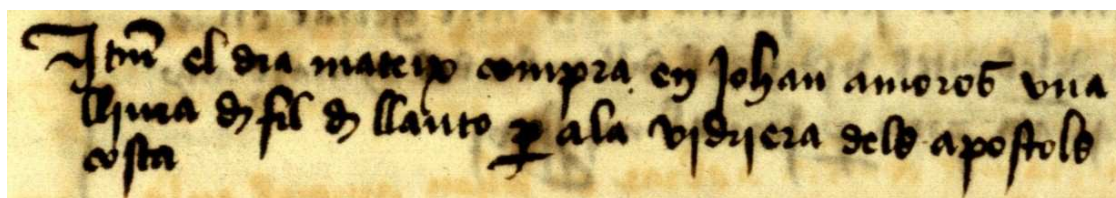 Itm el dia mateix compra en Johan amoros vna
lliura d fil d llauto p ala vidriera dels apostols
costa